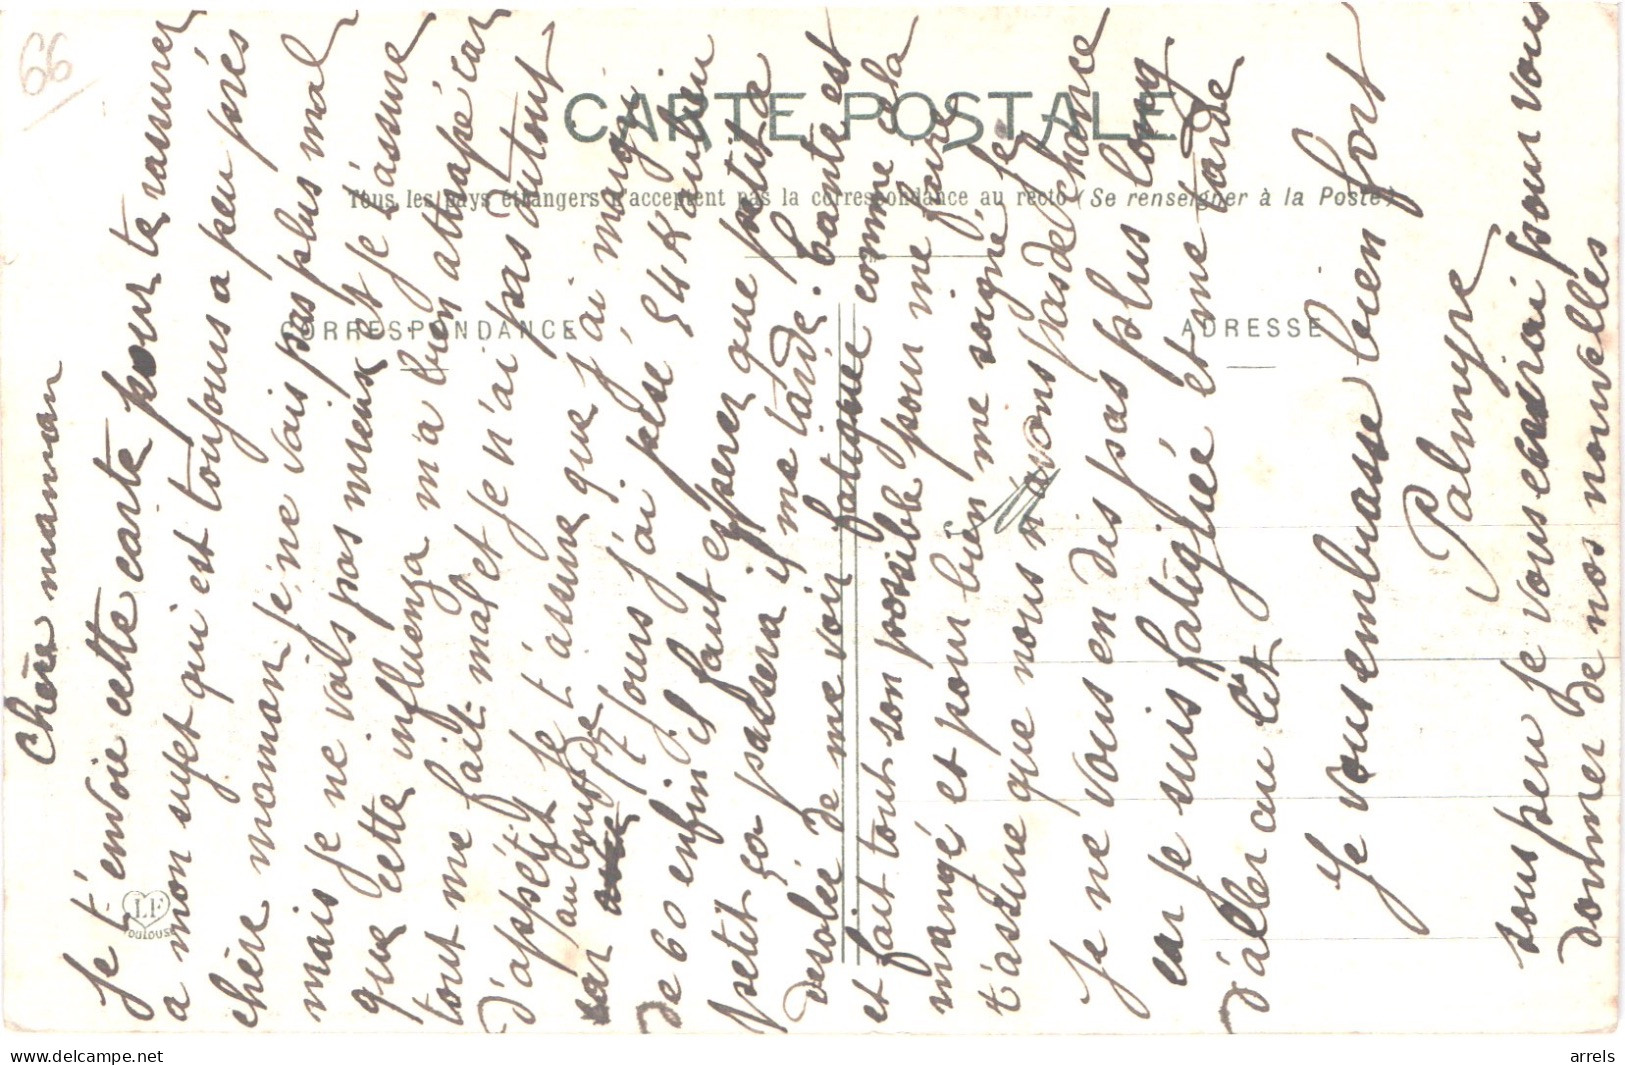 66
CARTE POSTALE
Tous les pays étrangers n'acceptent pas la correspondance au recto (Se renseigner à la Poste)
CORRESPONDANCE
ADRESSE
LF
TOULOUSE
Chère maman
Je t'envoie cette carte pour te rassurer
a mon sujet qui est toujours a peu prés
chère maman je ne vais pas plus mal
mais je ne vais pas mieux et je t'assure
que cette influenza m'a bien attrapé car
tout me fait mal et je n'ai pas dutout
d'appétit je t'assure que j'ai maigri
car au bout de 17 jours j'ai pesé 54 K aulieu
de 60 enfin il faut esperer que petit a
petit ça passera il me tarde. tante est
desolée de me voir fatiguée comme cela
et fait tout son possible pour me faire
mangé et pour bien me soigné je
t'assure que nous n'avons pas de chance
Je ne vous en dis pas plus long
car je suis fatiguée et me tarde
d'aller au lit
Je vous embrasse bien fort
Palmyre
sous peu je vous ecrirai pour vous
donner de nos nouvelles
www.delcampe.net
arrels